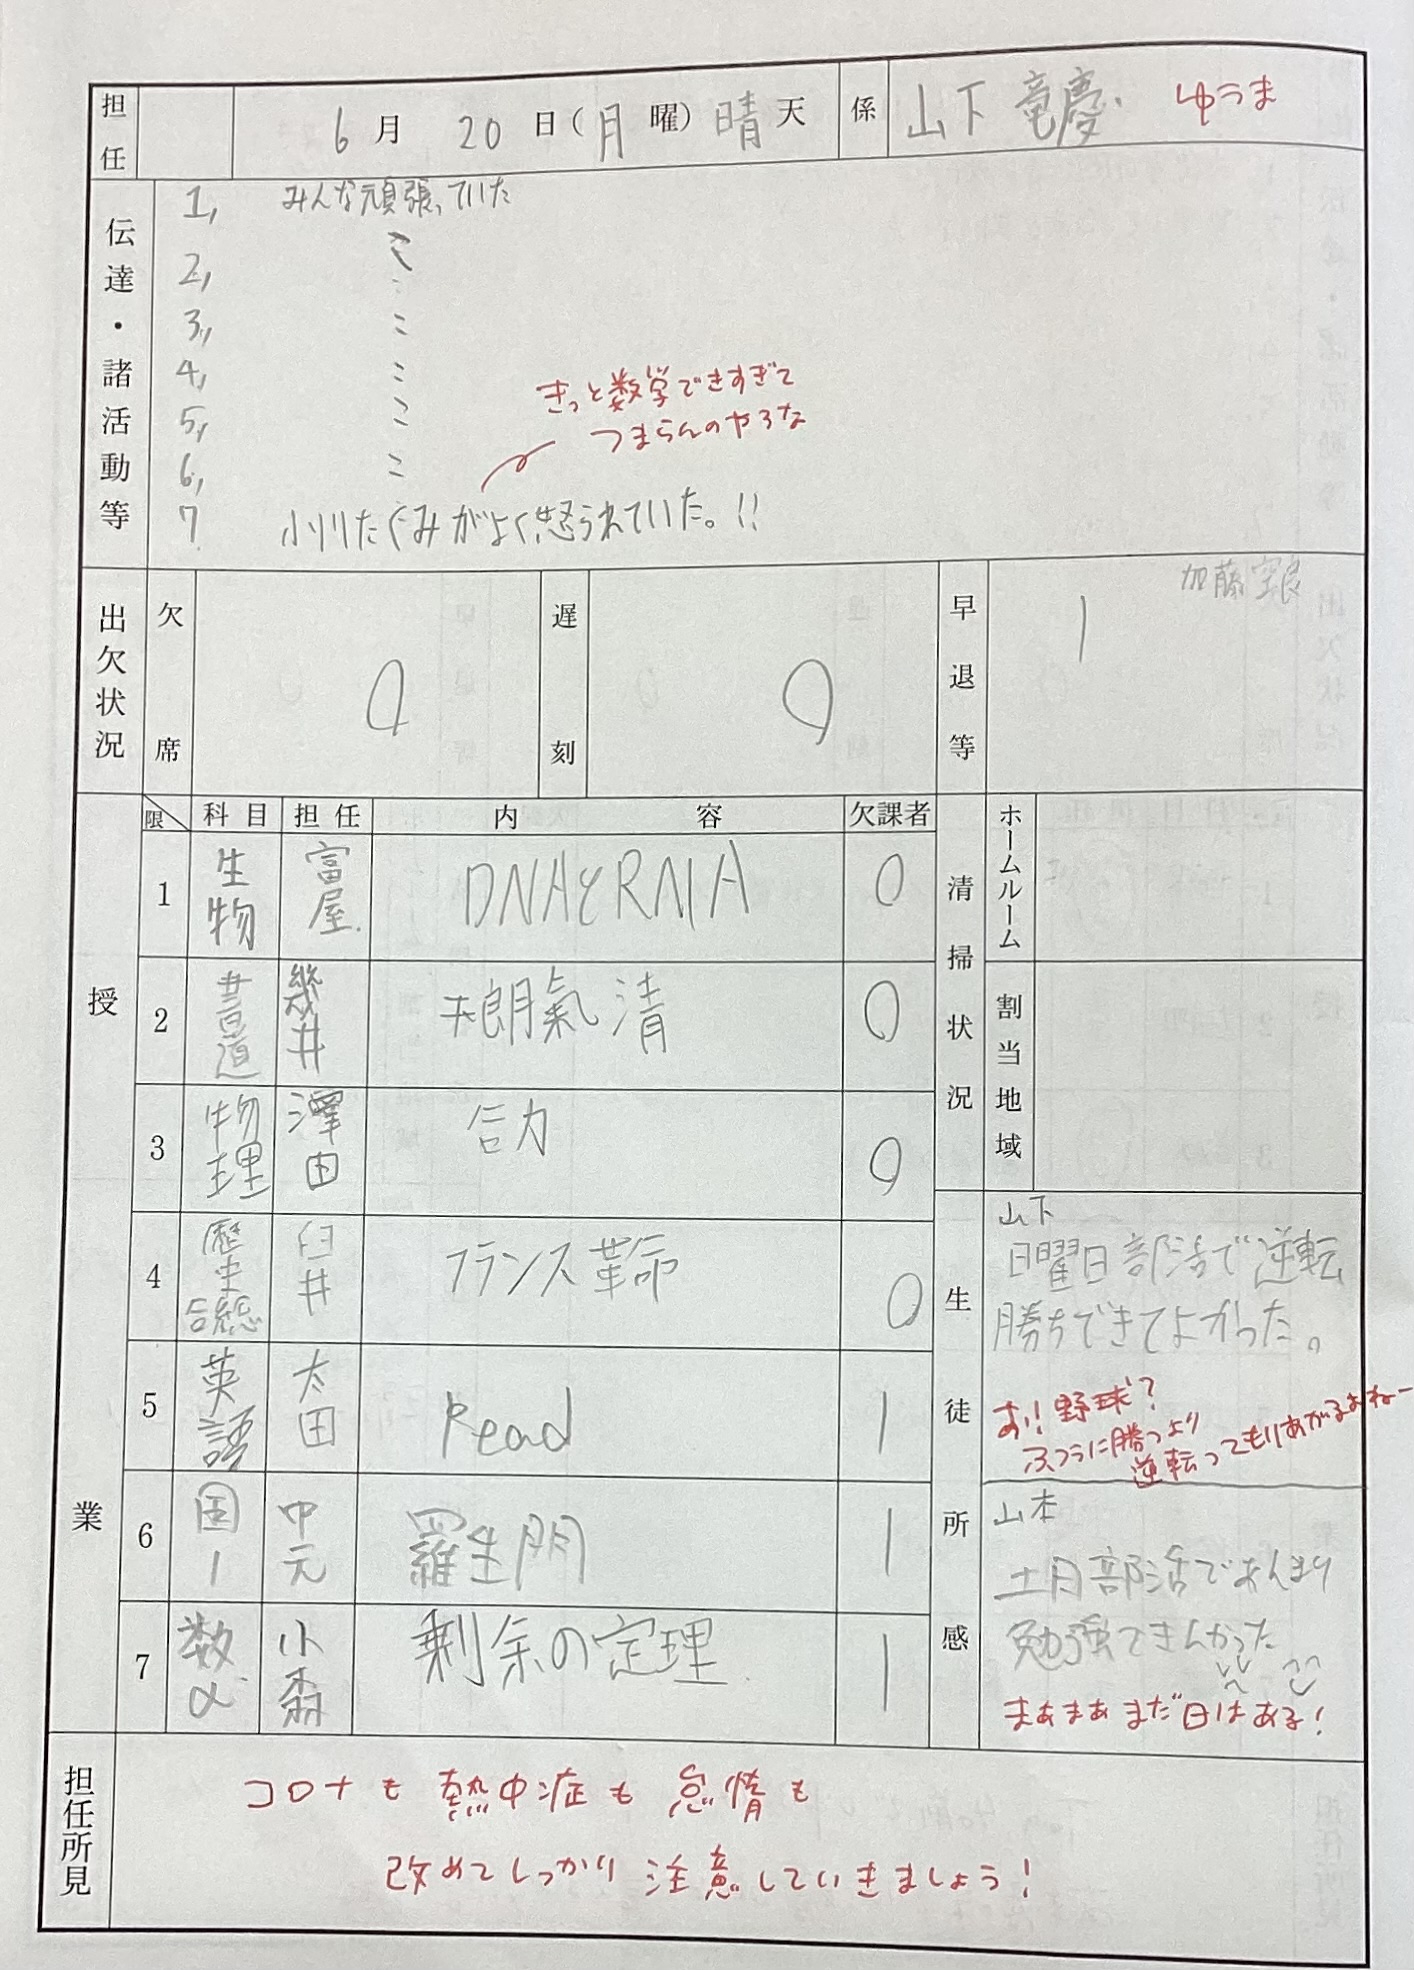 担任 6月20日(月曜)晴天 係 山下 竜慶 ゆうま
伝達・諸活動等
1, みんな頑張っていた
2, 〃
3, 〃
4, 〃
5, 〃
6, 〃
きっと数学できすぎて
つまらんのやろな
7. 小川たくみがよく怒られていた。!!
出欠状況 欠席 0 遅刻 0 早退等 1 加藤空良
授業
限 科目 担任 内容 欠課者
1 生物 富屋 DNAとRNA 0
2 書道 幾井 天朗氣清 0
3 物理 澤田 合力 0
4 歴史総合 臼井 フランス革命 0
5 英語 太田 Read 1
6 国1 中元 羅生門 1
7 数α 小森 剰余の定理 1
清掃状況
ホームルーム
割当地域
生徒所感
山下
日曜日部活で逆転
勝ちできてよかった。
お!!野球?
ふつうに勝つより
逆転ってもりあがるよねー
山本
土日部活であんまり
勉強できんかった
まぁまぁまだ日はある!
担任所見
コロナも熱中症も怠惰も
改めてしっかり注意していきましょう!